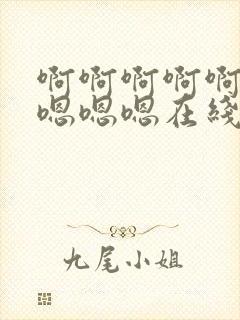 啊啊啊啊啊
嗯嗯嗯在綫
九尾小姐